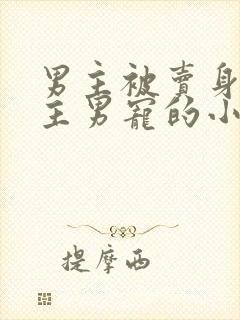 男主被賣身
主男寵的小
提摩西